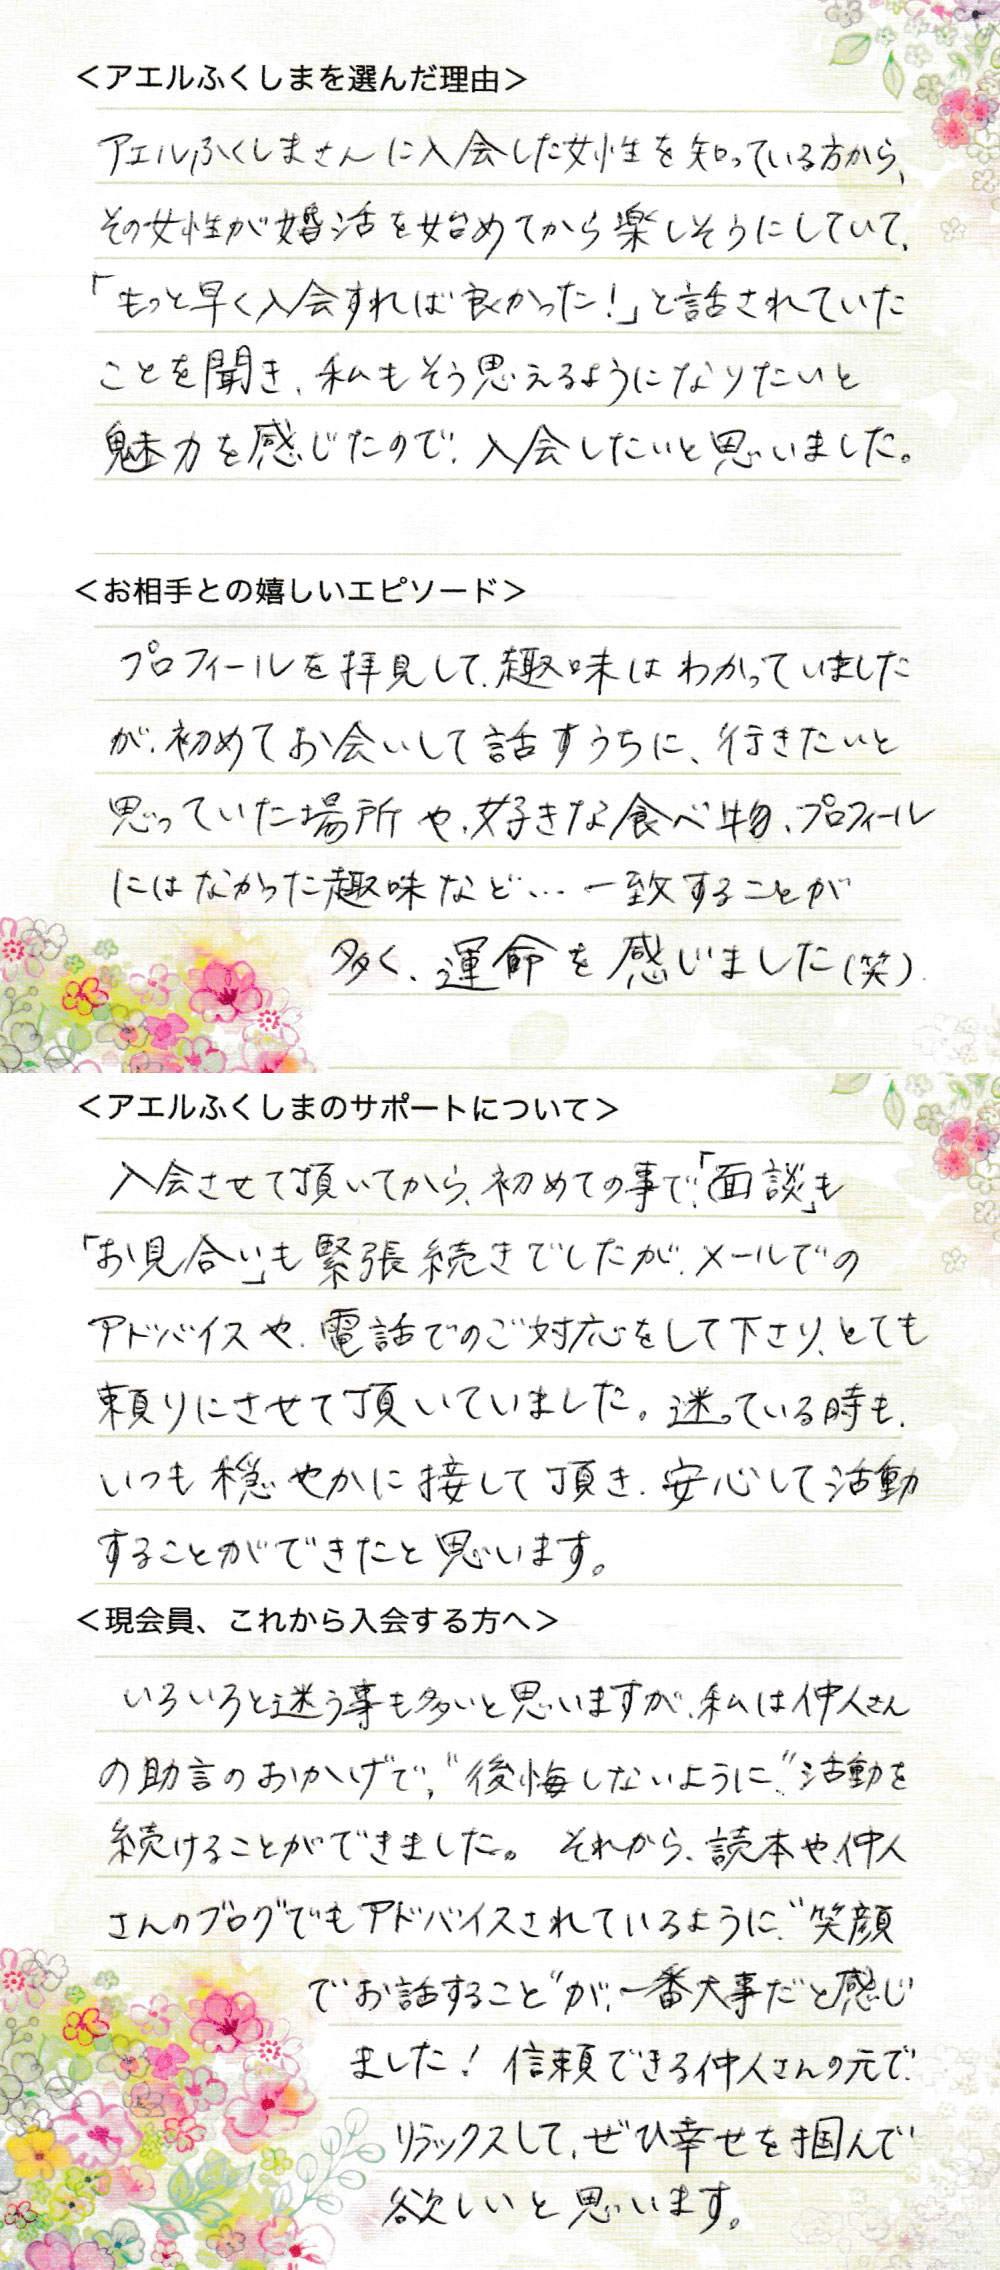 ＜アエルふくしまを選んだ理由＞
アエルふくしまさんに入会した女性を知っている方から、
その女性が婚活を始めてから楽しそうにしていて、
「もっと早く入会すれば良かった！」と話されていた
ことを聞き、私もそう思えるようになりたいと
魅力を感じたので、入会したいと思いました。
＜お相手との嬉しいエピソード＞
プロフィールを拝見して、趣味はわかっていました
が、初めてお会いして話すうちに、行きたいと
思っていた場所や、好きな食べ物、プロフィール
にはなかった趣味など…一致することが
多く、運命を感じました（笑）
＜アエルふくしまのサポートについて＞
入会させて頂いてから、初めての事で、「面談」も
「お見合い」も緊張続きでしたが、メールでの
アドバイスや、電話でのご対応をして下さり、とても
頼りにさせて頂いていました。迷っている時も、
いつも穏やかに接して頂き、安心して活動
することができたと思います。
＜現会員、これから入会する方へ＞
いろいろと迷う事も多いと思いますが、私は仲人さん
の助言のおかげで、“後悔しないように”活動を
続けることができました。それから、読本や、仲人
さんのブログでもアドバイスされているように、“笑顔
でお話すること”が、一番大事だと感じ
ました！信頼できる仲人さんの元で、
リラックスして、ぜひ幸せを掴んで
欲しいと思います。